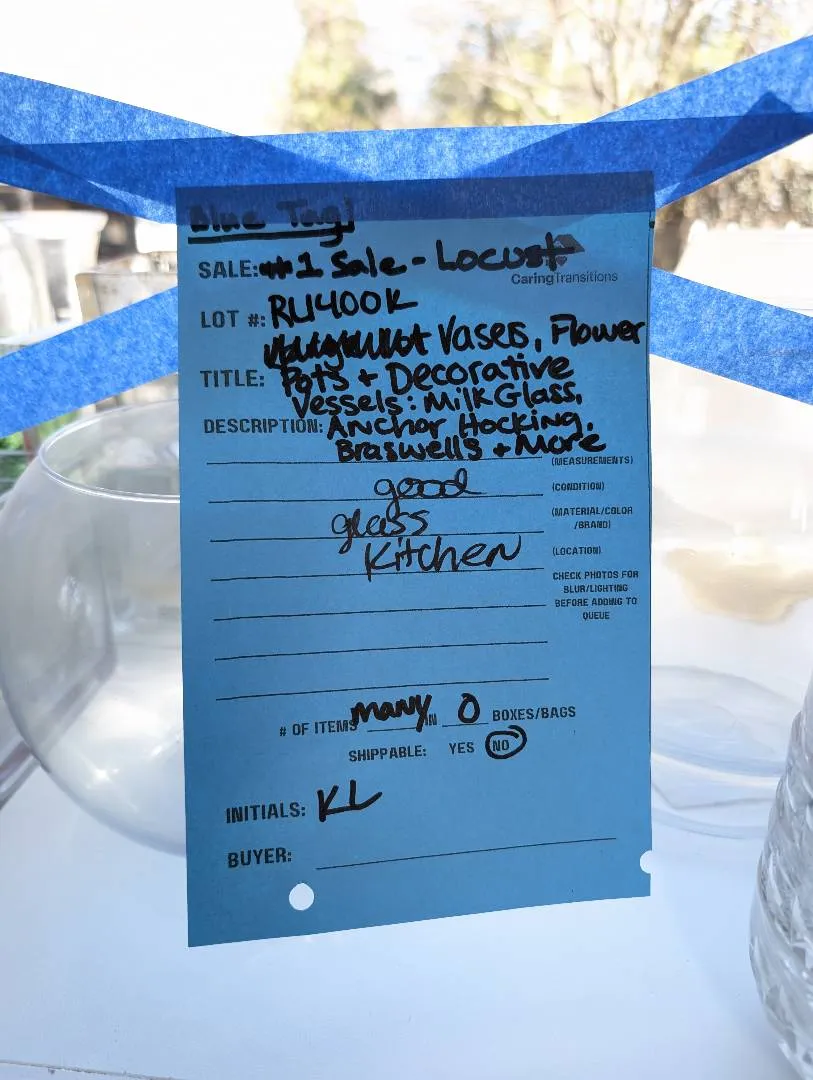 Blue Tag!
SALE: #1 Sale - Locust
CaringTransitions
LOT #: RU400K
Vases, Flower
TITLE: Pots + Decorative
Vessels: Milk Glass,
DESCRIPTION: Anchor Hocking,
Braswells + More
(MEASUREMENTS)
good (CONDITION)
glass (MATERIAL/COLOR
/BRAND)
Kitchen (LOCATION)
CHECK PHOTOS FOR
BLUR/LIGHTING
BEFORE ADDING TO
QUEUE
# OF ITEMS many IN 0 BOXES/BAGS
SHIPPABLE: YES NO
INITIALS: KL
BUYER: